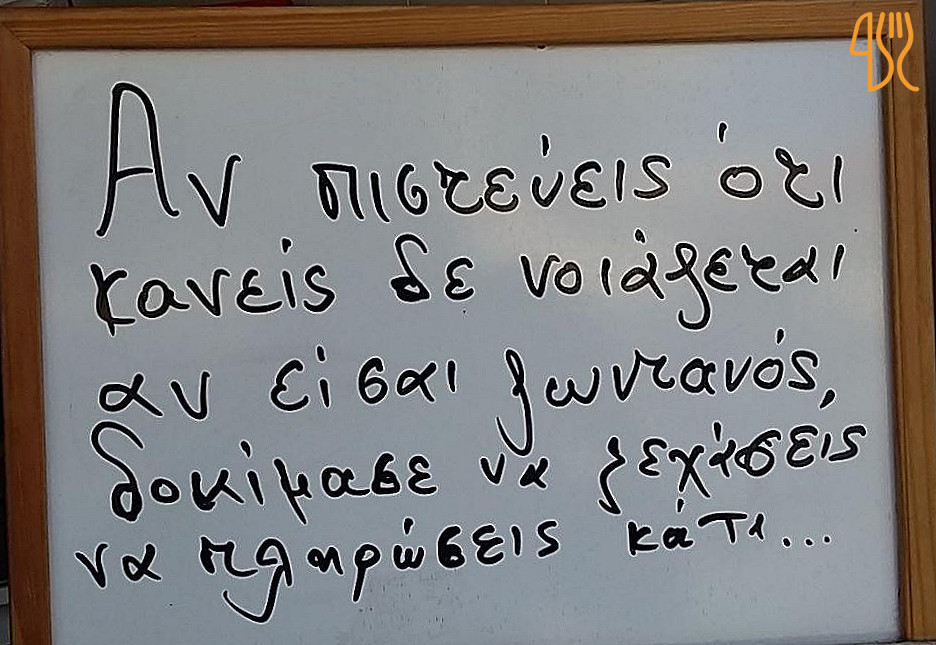 Αν πιστεύεις ότι
κανείς δε νοιάζεται
αν είσαι ζωντανός,
δοκίμασε να ξεχάσεις
να πληρώσεις κάτι...